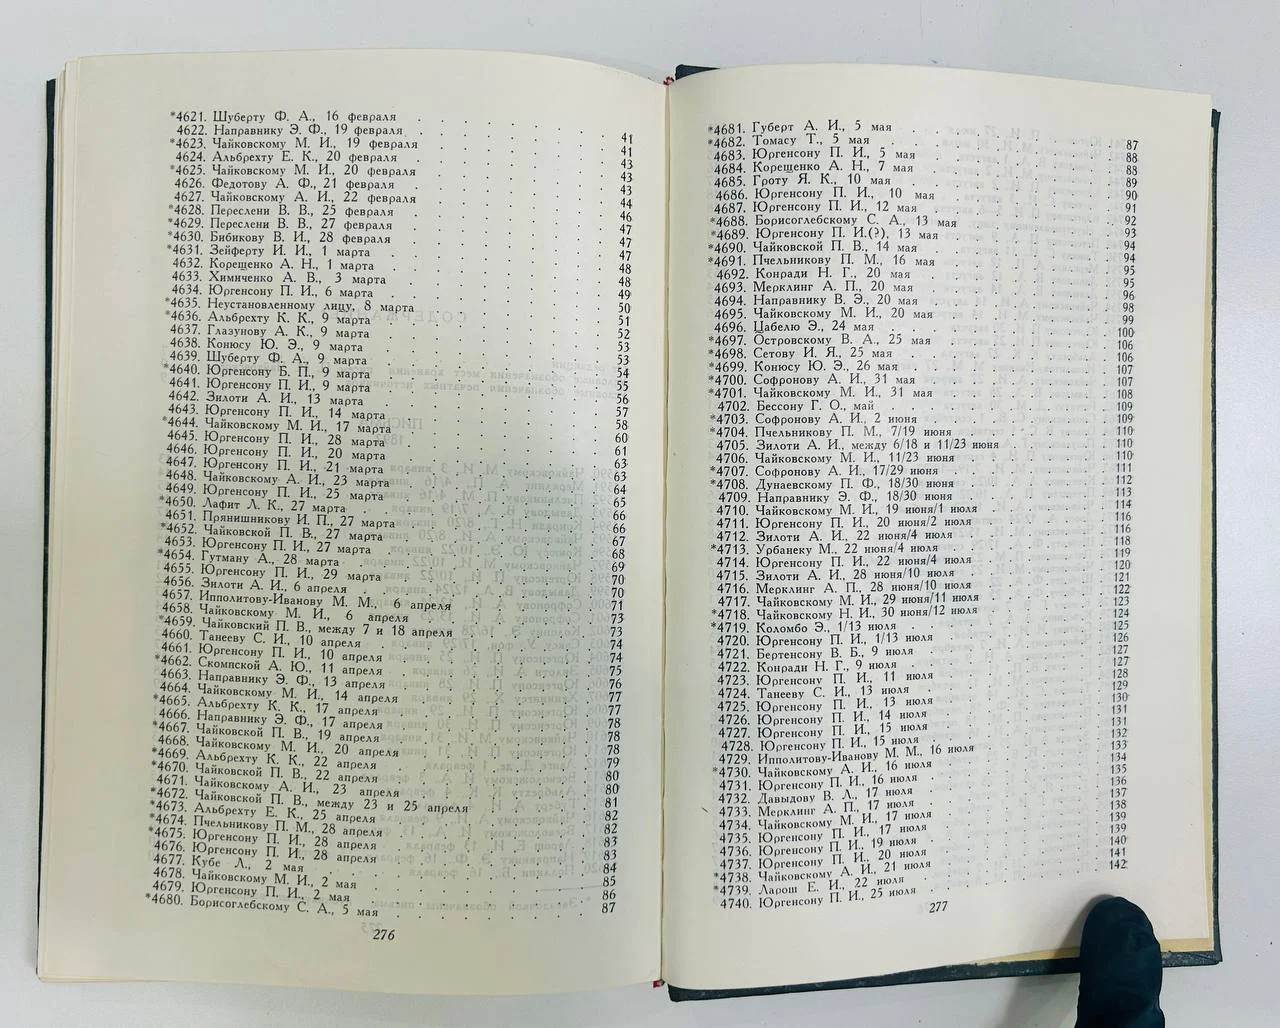 *4621. Шуберту Ф. А., 16 февраля 41
4622. Направнику Э. Ф., 19 февраля 41
*4623. Чайковскому М. И., 19 февраля 43
4624. Альбрехту Е. К., 20 февраля 43
*4625. Чайковскому М. И., 20 февраля 43
4626. Федотову А. Ф., 21 февраля 44
4627. Чайковскому А. И., 22 февраля 46
*4628. Переслени В. В., 25 февраля 47
*4629. Переслени В. В., 27 февраля 47
*4630. Бибикову В. И., 28 февраля 47
*4631. Зейферту И. И., 1 марта 48
4632. Корещенко А. Н., 1 марта 48
4633. Химиченко А. В., 3 марта 49
4634. Юргенсону П. И., 6 марта 50
*4635. Неустановленному лицу, 8 марта 51
*4636. Альбрехту К. К., 9 марта 52
4637. Глазунову А. К., 9 марта 53
4638. Конюсу Ю. Э., 9 марта 53
4639. Шуберту Ф. А., 9 марта 54
*4640. Юргенсону Б. П., 9 марта 55
4641. Юргенсону П. И., 9 марта 56
4642. Зилоти А. И., 13 марта 57
4643. Юргенсону П. И., 14 марта 58
*4644. Чайковскому М. И., 17 марта 60
4645. Юргенсону П. И., 28 марта 61
4646. Юргенсону П. И., 20 марта 63
4647. Юргенсону П. И., 21 марта 63
4648. Чайковскому А. И., 23 марта 64
4649. Юргенсону П. И., 25 марта 65
*4650. Лафит Л. К., 27 марта 66
4651. Прянишникову И. П., 27 марта 66
*4652. Чайковской П. В., 27 марта 67
4653. Юргенсону П. И., 27 марта 68
*4654. Гутману А., 28 марта 69
4655. Юргенсону П. И., 29 марта 70
4656. Зилоти А. И., 6 апреля 70
4657. Ипполитову-Иванову М. М., 6 апреля 71
4658. Чайковскому М. И., 6 апреля 73
*4659. Чайковский П. В., между 7 и 18 апреля 73
4660. Танееву С. И., 10 апреля 74
4661. Юргенсону П. И., 10 апреля 74
*4662. Скомпской А. Ю., 11 апреля 75
4663. Направнику Э. Ф., 13 апреля 76
4664. Чайковскому М. И., 14 апреля 77
*4665. Альбрехту К. К., 17 апреля 77
4666. Направнику Э. Ф., 17 апреля 78
*4667. Чайковской П. В., 19 апреля 78
4668. Чайковскому М. И., 20 апреля 78
*4669. Альбрехту К. К., 22 апреля 79
*4670. Чайковской П. В., 22 апреля 80
4671. Чайковскому А. И., 23 апреля 80
*4672. Чайковской П. В., между 23 и 25 апреля 81
*4673. Альбрехту Е. К., 25 апреля 82
*4674. Пчельникову П. М., 28 апреля 82
*4675. Юргенсону П. И., 28 апреля 83
4676. Юргенсону П. И., 28 апреля 83
4677. Кубе Л., 2 мая 84
4678. Чайковскому М. И., 2 мая 85
4679. Юргенсону П. И., 2 мая 86
*4680. Борисоглебскому С. А., 5 мая 87
276
*4681. Губерт А. И., 5 мая 87
*4682. Томасу Т., 5 мая 88
4683. Юргенсону П. И., 5 мая 88
4684. Корещенко А. Н., 7 мая 89
4685. Гроту Я. К., 10 мая 90
4686. Юргенсону П. И., 10 мая 91
4687. Юргенсону П. И., 12 мая 92
*4688. Борисоглебскому С. А., 13 мая 93
*4689. Юргенсону П. И.(?), 13 мая 94
*4690. Чайковской П. В., 14 мая 94
*4691. Пчельникову П. М., 16 мая 95
4692. Конради Н. Г., 20 мая 95
4693. Мерклинг А. П., 20 мая 96
4694. Направнику В. Э., 20 мая 98
4695. Чайковскому М. И., 20 мая 99
4696. Цабелю Э., 24 мая 100
*4697. Островскому В. А., 25 мая 106
*4698. Сетову И. Я., 25 мая 106
*4699. Конюсу Ю. Э., 26 мая 107
*4700. Софронову А. И., 31 мая 107
*4701. Чайковскому М. И., 31 мая 108
4702. Бессону Г. О., май 109
*4703. Софронову А. И., 2 июня 109
*4704. Пчельникову П. М., 7/19 июня 110
4705. Зилоти А. И., между 6/18 и 11/23 июня 110
4706. Чайковскому М. И., 11/23 июня 110
*4707. Софронову А. И., 17/29 июня 111
*4708. Дунаевскому П. Ф., 18/30 июня 112
4709. Направнику Э. Ф., 18/30 июня 113
4710. Чайковскому М. И., 19 июня/1 июля 114
4711. Юргенсону П. И., 20 июня/2 июля 116
4712. Зилоти А. И., 22 июня/4 июля 116
*4713. Урбанеку М., 22 июня/4 июля 118
4714. Юргенсону П. И., 22 июня/4 июля 119
4715. Зилоти А. И., 28 июня/10 июля 120
4716. Мерклинг А. П., 28 июня/10 июля 121
4717. Чайковскому М. И., 29 июня/11 июля 122
*4718. Чайковскому Н. И., 30 июня/12 июля 123
*4719. Коломбо Э., 1/13 июля 124
4720. Юргенсону П. И., 1/13 июля 125
4721. Бертенсону В. Б., 9 июля 126
4722. Конради Н. Г., 9 июля 127
4723. Юргенсону П. И., 11 июля 127
4724. Танееву С. И., 13 июля 128
4725. Юргенсону П. И., 13 июля 129
4726. Юргенсону П. И., 14 июля 130
4727. Юргенсону П. И., 15 июля 131
4728. Юргенсону П. И., 15 июля 131
4729. Ипполитову-Иванову М. М., 16 июля 132
*4730. Чайковскому А. И., 16 июля 133
4731. Юргенсону П. И., 16 июля 134
4732. Давыдову В. Л., 17 июля 135
4733. Мерклинг А. П., 17 июля 136
4734. Чайковскому М. И., 17 июля 137
4735. Юргенсону П. И., 17 июля 138
4736. Юргенсону П. И., 19 июля 139
4737. Юргенсону П. И., 20 июля 139
*4738. Чайковскому А. И., 21 июля 140
*4739. Ларош Е. И., 22 июля 141
4740. Юргенсону П. И., 25 июля 142
277